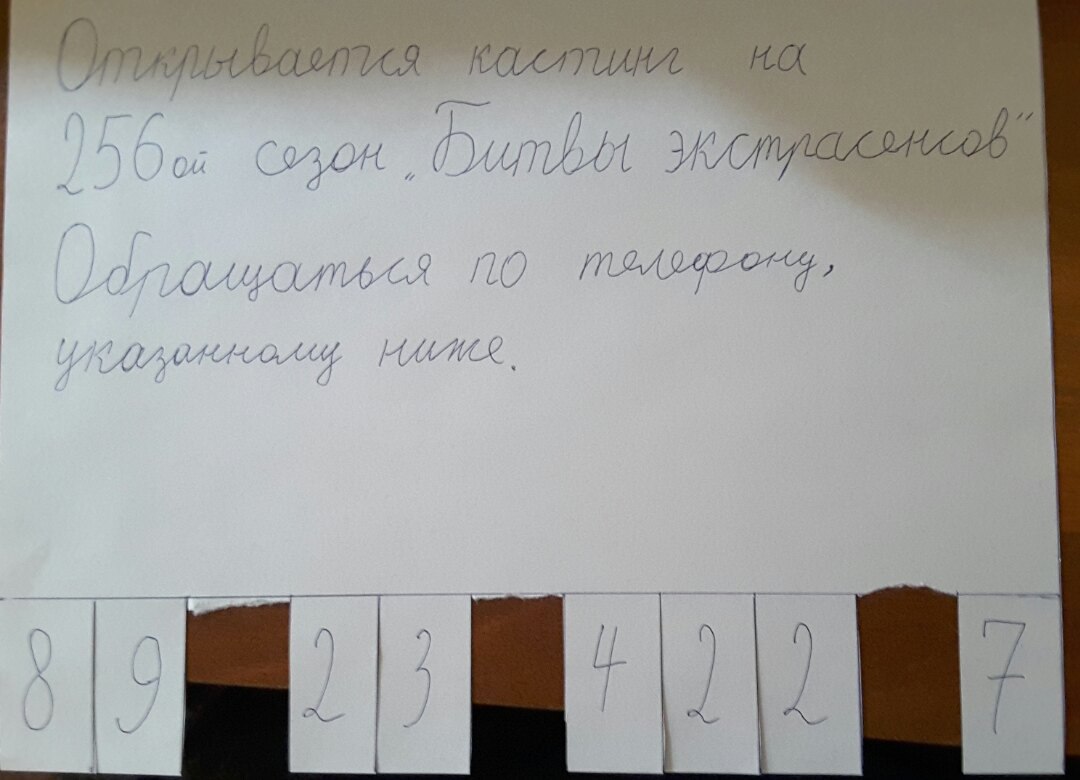 Открывается кастинг на
256ой сезон „Битвы экстрасенсов"
Обращаться по телефону,
указанному ниже.
8 9 2 3 4 2 2 7